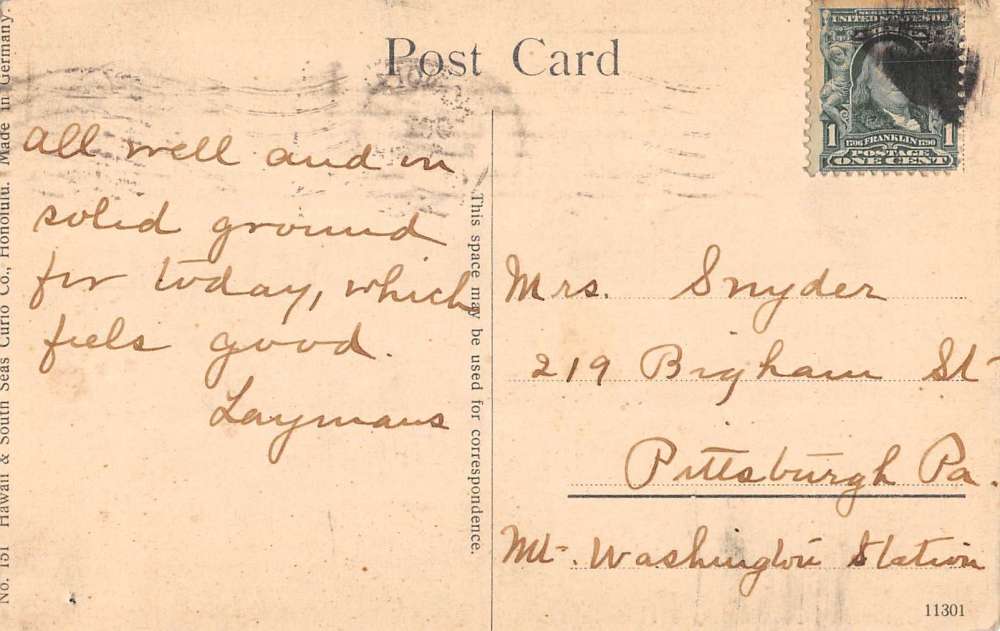 Post Card
UNITED STATES OF
1706 FRANKLIN 1790
POSTAGE
1 ONE CENT 1
all well and on
solid ground
for today, which
feels good.
Laymans
This space may be used for correspondence.
No. 151 Hawaii & South Seas Curio Co., Honolulu. Made in Germany.
Mrs. Snyder
219 Bigham St
Pittsburgh Pa.
Mt. Washington Station
11301